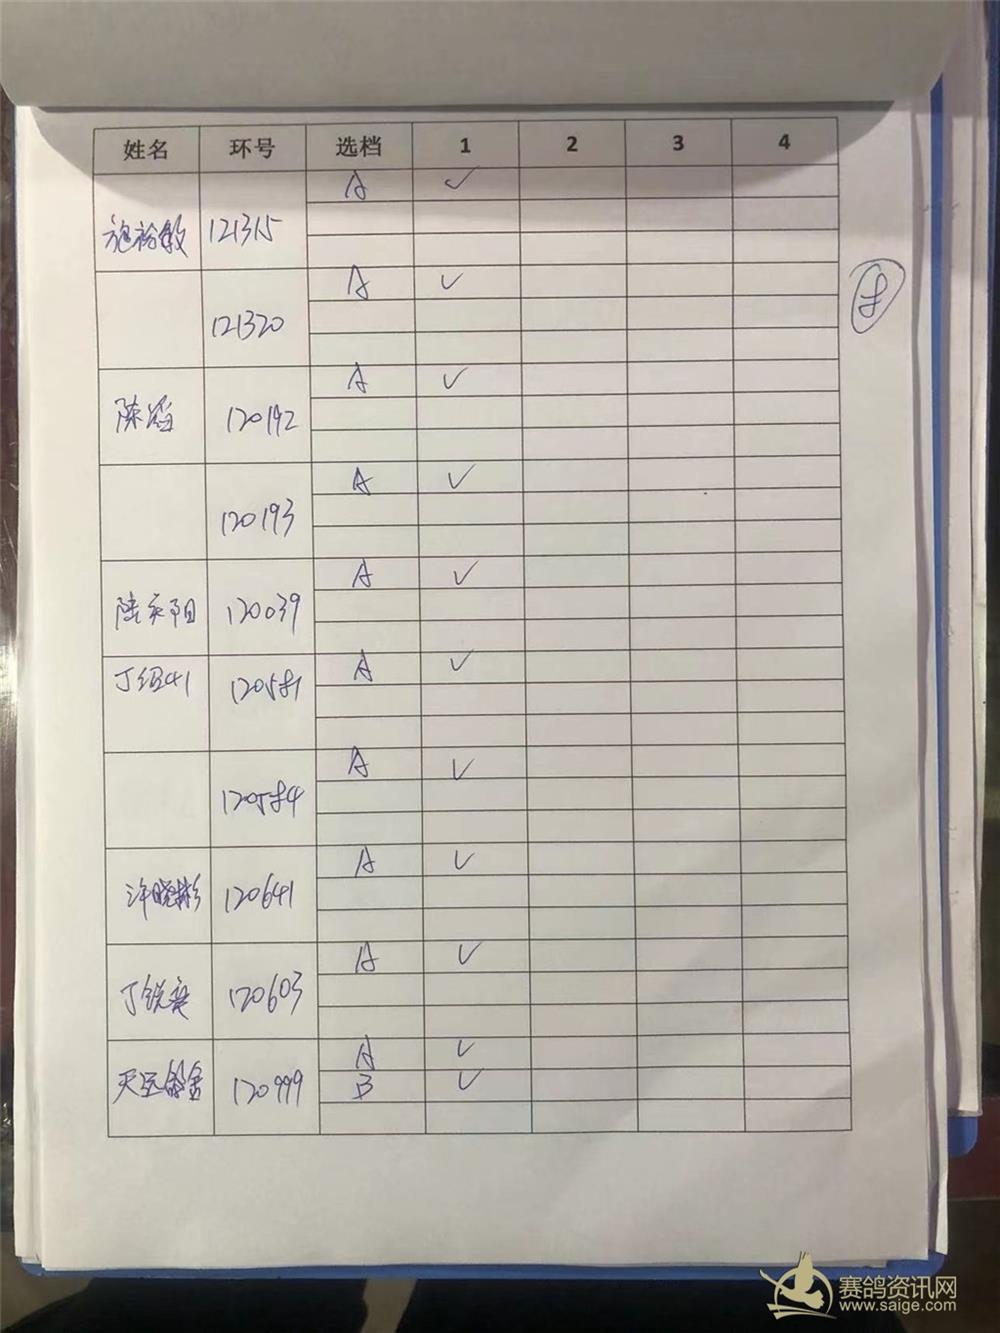 姓名 环号 选档 1 2 3 4
A ✓
施裕敏 121315
A ✓
121320
A ✓
陈滔 120192
A ✓
120193
A ✓
陆天阳 120039
A ✓
120581
A ✓
120584
A ✓
许晓彬 120641
A ✓
丁锐奕 120603
A ✓
天运鸽舍 120999 B ✓
赛鸽资讯网
www.saige.com